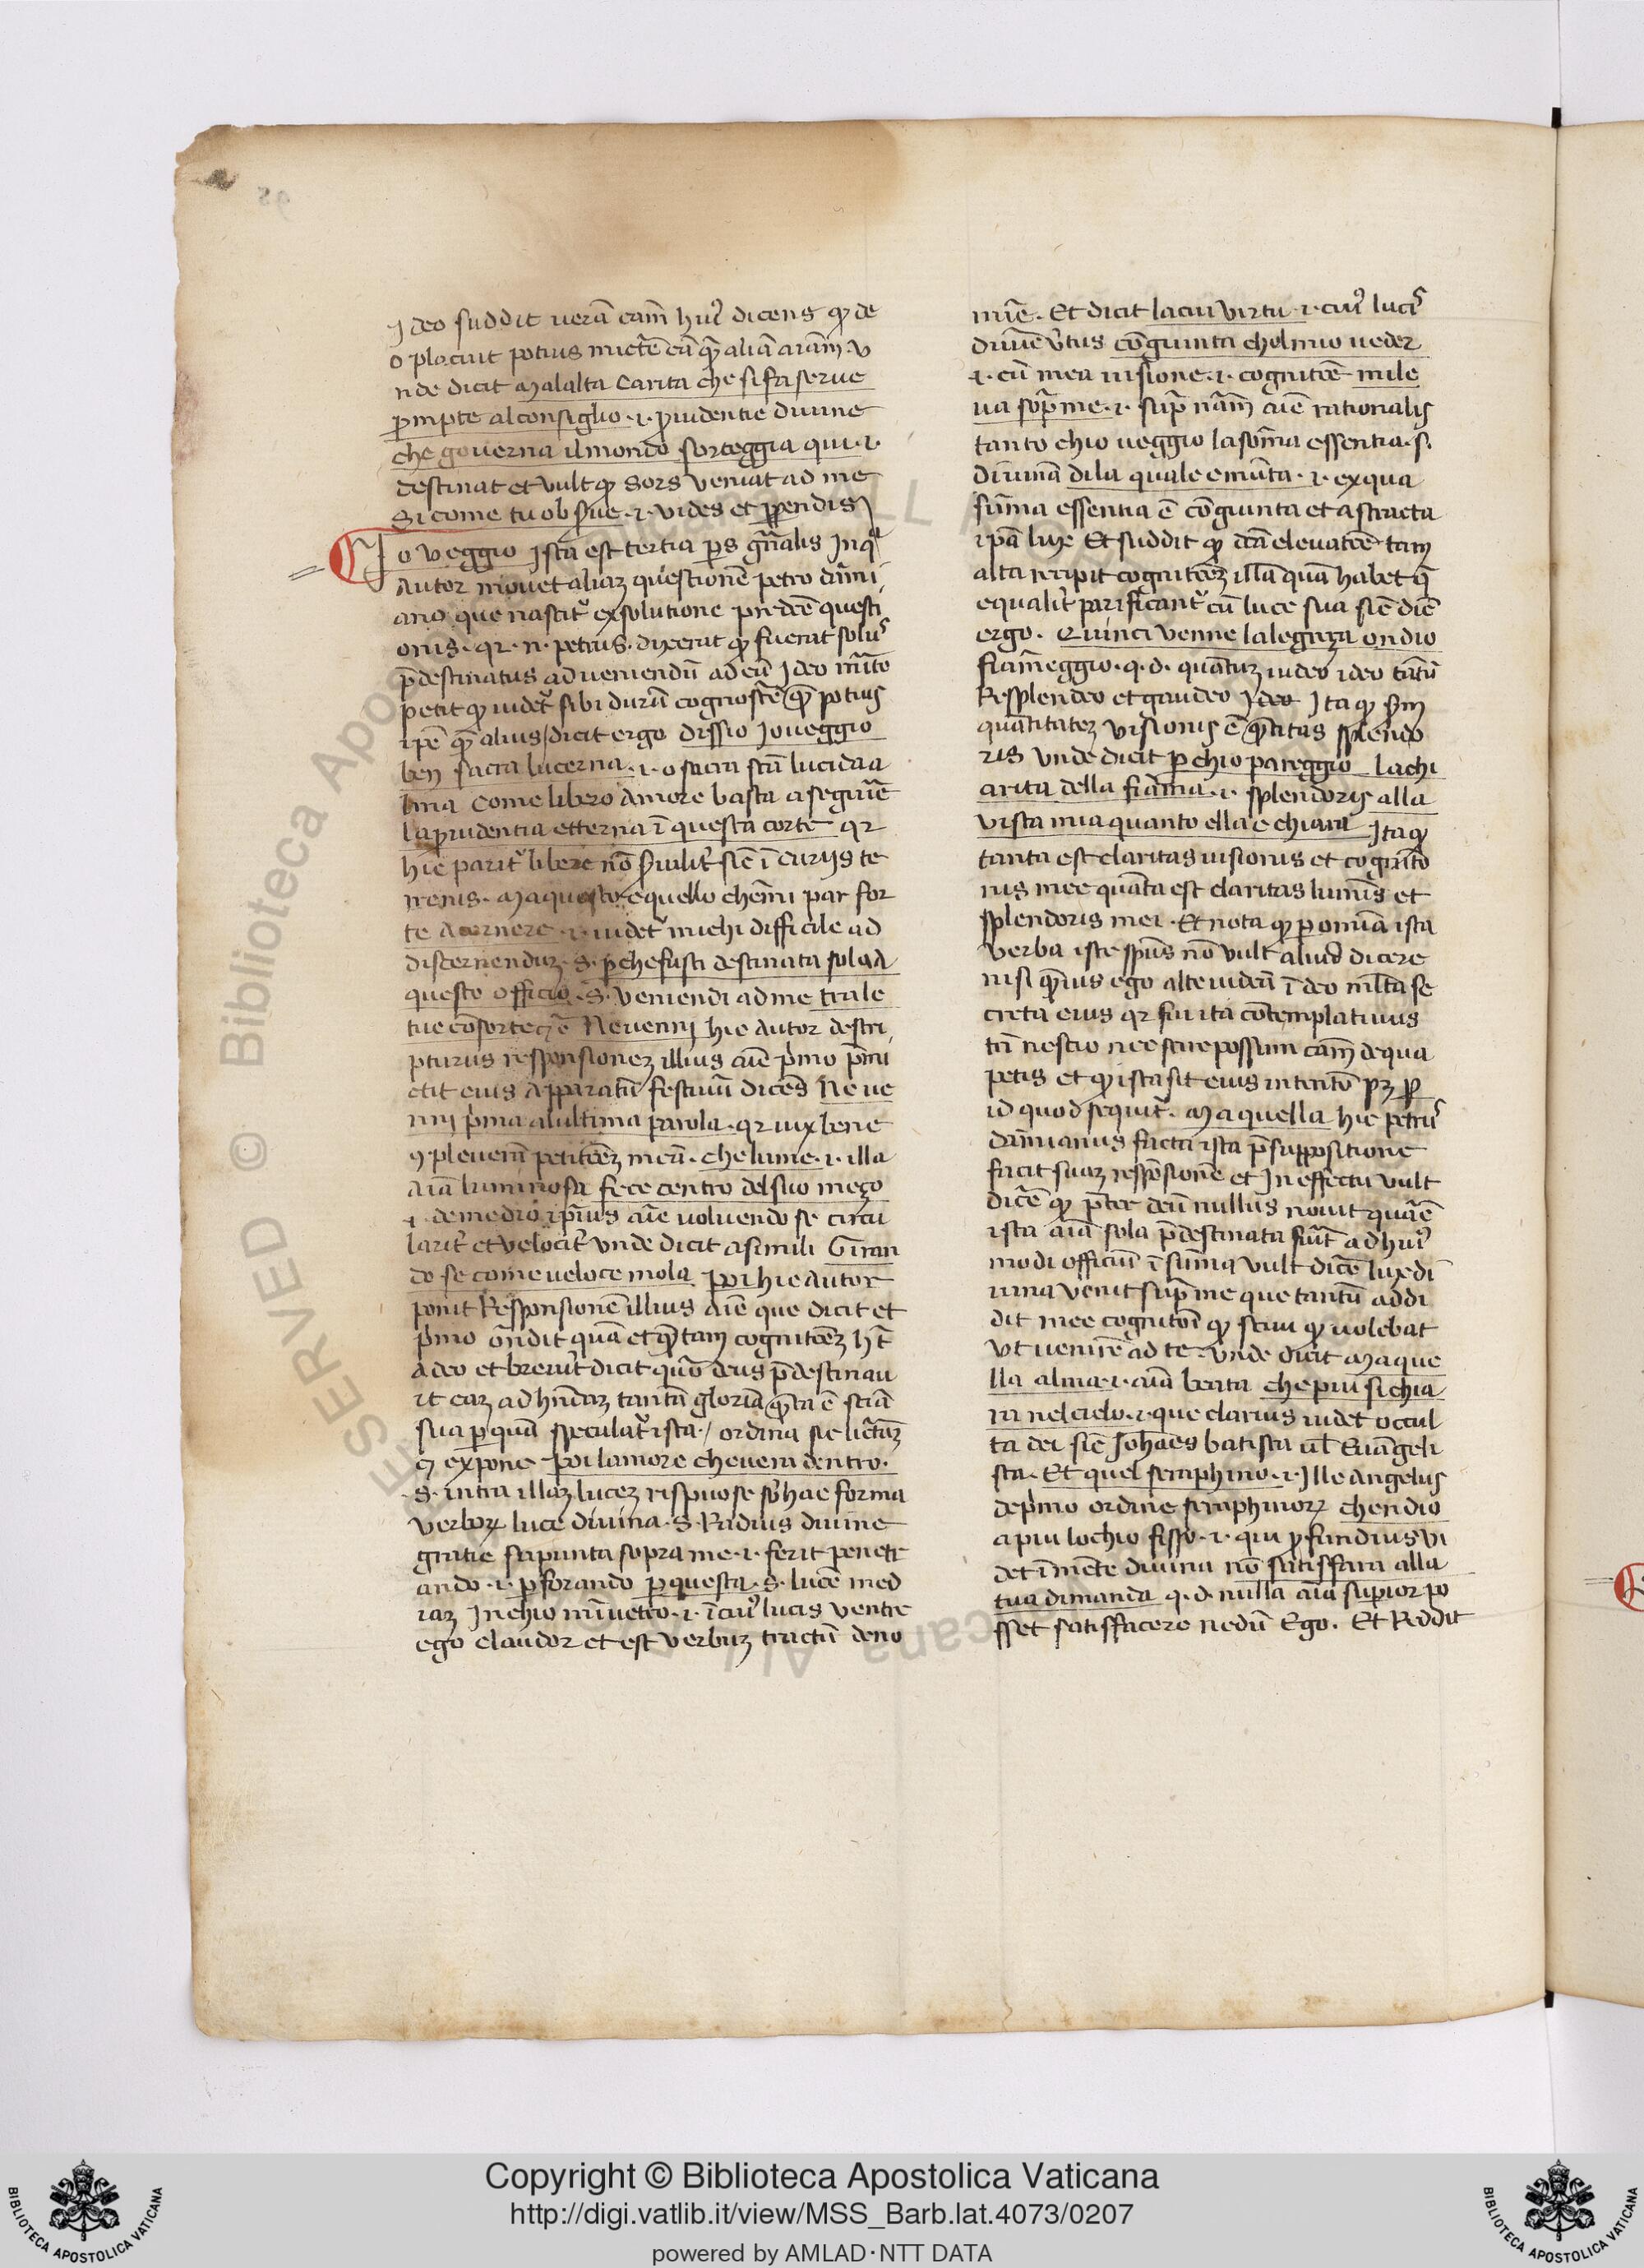 Ideo suddit uerā cām huiꝰ dicens qđ de
o placuit potius mictēe eā qȝ aliā aīam. v
nde dicit Malalta carita che si fa serue
ꝓmpte al consiglio .i. ꝓuidentie diuine
che gouerna il mondo sorteggia qui .i.
destinat et vult qđ sors veniat ad me
Si come tu obẜue .i. vides et ꝑpendis
Io veggio Ista est tertia ps gn̄alis In qͣ
Autor mouet aliaȝ questionē petro dāmi
ano que nascitᷣ ex solutione pn̄dēe questi
onis. qꝛ .n. petrus. dixerat qđ fuerat solꝰ
p̄destinatus ad ueniendū ad eū Ideo mīto
petit qđ uidetᷣ sibi durū cognosc̄e qȝ potius
ipē qȝ alius / dicit ergo dissio Io ueggio
ben sacra lucerna .i. o sacra sctā lucida a
īma Come libero Amore basta a seguire
la ꝓuidentia etterna ī questa corte qꝛ
hic paritᷣ libere nō ẜuilitᷣ sic̄ ī curijs te
rrenis. Ma questo e quello che mi par for
te A cernere .i. uidetᷣ michi difficile ad
discernenduȝ .s. ꝑche fusti destinata sola A
questo officio .s. veniendi ad me tra le
tue cōsorte ȝē Ne uenni hic Autor descri
pturus responsioneȝ illius aīe p̄mo p̄mi
ctit eius Apparatū festiuū dicēs Ne ue
nni p̄ma a lultima parola. qꝛ uix bene
ꝯpleuerā petitōeȝ meā. che lume .i. illa
Aīa luminosa fece centro del suo meço
.i. de medio ipīus aīe uoluendo se circu
laritᷣ et velocitᷣ vnde dicit a simili Giran
do se come ueloce mola Poi hic Autor
ponit Responsionē illius Aīe que dicit et
p̄mo ōndit quā et qȝtam cognitōeȝ hȝ
A deo et breuitᷣ dicit quō deus p̄destinau
it eaȝ ad hn̄daȝ tantā gloriā qȝta ē sciā
sua ꝑ quā speculatᷣ ista. / ordina sic lr̄aȝ
ꝯ expone Poi lamore che uera dentro.
.s. intra illaȝ luceȝ rispuose sb̄ hac forma
verboꝝ luce diuina .s. Radius diuine
gratie sa punta sopra me .i. ferit penetr
ando .i. ꝑforando ꝑ questa .s. lucē med
iaȝ In chio mīuetro .i. ī cuiꝰ lucis ventre
ego claudor et est verbuȝ tractū deno
mīe. Et dicit la cui virtu .i. cuiꝰ lucis
diuīe v̄tus cōgiunta chol mio ueder
.i. cū mea uisione .i. cognitōe mi le
ua sopͣ me .i. supͣ nām aīe rationalis
tanto chio ueggio la sōma essentia .s.
diuinā di la quale e mūta .i. ex qua
sūma essentia ē cōgiunta et astracta
ipā lux Et suddit qđ dc̄a eleuatōe tam
alta recipit cognitōeȝ illā quā habet qͣ
equalitᷣ parificantᷣ cū luce sua sic̄ dic̄
ergo. Quinci venne lalegreça ondio
fiam̄eggio .q.d. quātuȝ uideo ideo tātū
Resplendeo et gaudeo Ideo Ita qđ ẜm
quātitateȝ visionis ē qȝtitas splendo
ris vnde dicit ꝑchio pareggio la chi
arita della fiāma .i. splendoris alla
vista mia quanto ella e chiara Ita qđ
tanta est claritas uisionis et cognito
nis mee quāta est claritas luminis et
splendoris mei. Et nota qđ ꝑ omia ista
verba iste spūs nō vult aliud dicere
nisi qȝuis ego alte uideā ī deo ml̄ta se
creta eius qꝛ fui ita cōtemplatiuus
tn̄ nescio nec scire possum cām de qua
petis et qđ ista sit eius intentō pȝ ꝑ
id quod sequitᷣ. Ma quella hic petrꝰ
dāmianus facta ista p̄suppositione
facit suaȝ respōsionē et In effectu vult
dicē qđ p̄ter deū nullus nouit quāē
ista aīa sola p̄destinata fuit ad huiꝰ
modi officiū ī sūma vult dicē lux di
uina venit supͣ me que tantū addi
dit mee cognitōi qđ sciui qđ uolebat
vt uenirē ad te. vnde dicit Ma que
lla alma .i. aīa beata che piu si chia
ra nel cielo .i. que clarius uidet occul
ta dei sic̄ Johaēs batista ul̄ Euāgeli
sta. Et quel seraphino .i. Ille Angelus
de p̄mo ordine seraphinoꝝ chendio
a piu lochio fisso .i. qui ꝓfundius vi
det ī mēte diuina nō satisfara alla
tua dimanda .q.d. nulla aīa suꝑior po
sset satisfacere nedū Ego. Et Reddit
Copyright © Biblioteca Apostolica Vaticana
http://digi.vatlib.it/view/MSS_Barb.lat.4073/0207
powered by AMLAD·NTT DATA